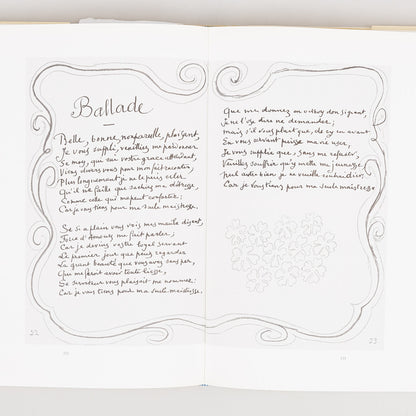 Ballade
Belle, bonne, nonpareille, plaisant,
Je vous suppli, veuilliez me pardonner
Se moy, qui sui votre grace attendant,
Viens devers vous pour mon fait raconter,
Plus longuement je ne le puis celer
Qu'il ne faille que sachiez ma destresse,
Comme celle qui me peut conforter,
Car je vous tiens pour ma seule maistresse.
Se si a plain vous vois mes maulx disant,
Force d'Amours me fait parler;
Car je devins vostre loyal servant
Le premier jour que peus regarder
La grant beauté que vous avez sans per,
Qui me feroit avoir toute liesse,
Se serviteur vous plaisoit me nommer:
Car je vous tiens pour ma seule maistresse.
22
Que me donnez en octroy don si grant,
Je ne l'ose dire ne demander;
mais s'il vous plaist que, de cy en avant
En vous servant puisse ma vie user,
Je vous supplie que, sans me refuser,
Vueillez souffrir qu'y mette ma jeunesse.
Nul autre bien je ne veuille souhaidier
Car je vous tiens pour ma seule maistresse
23